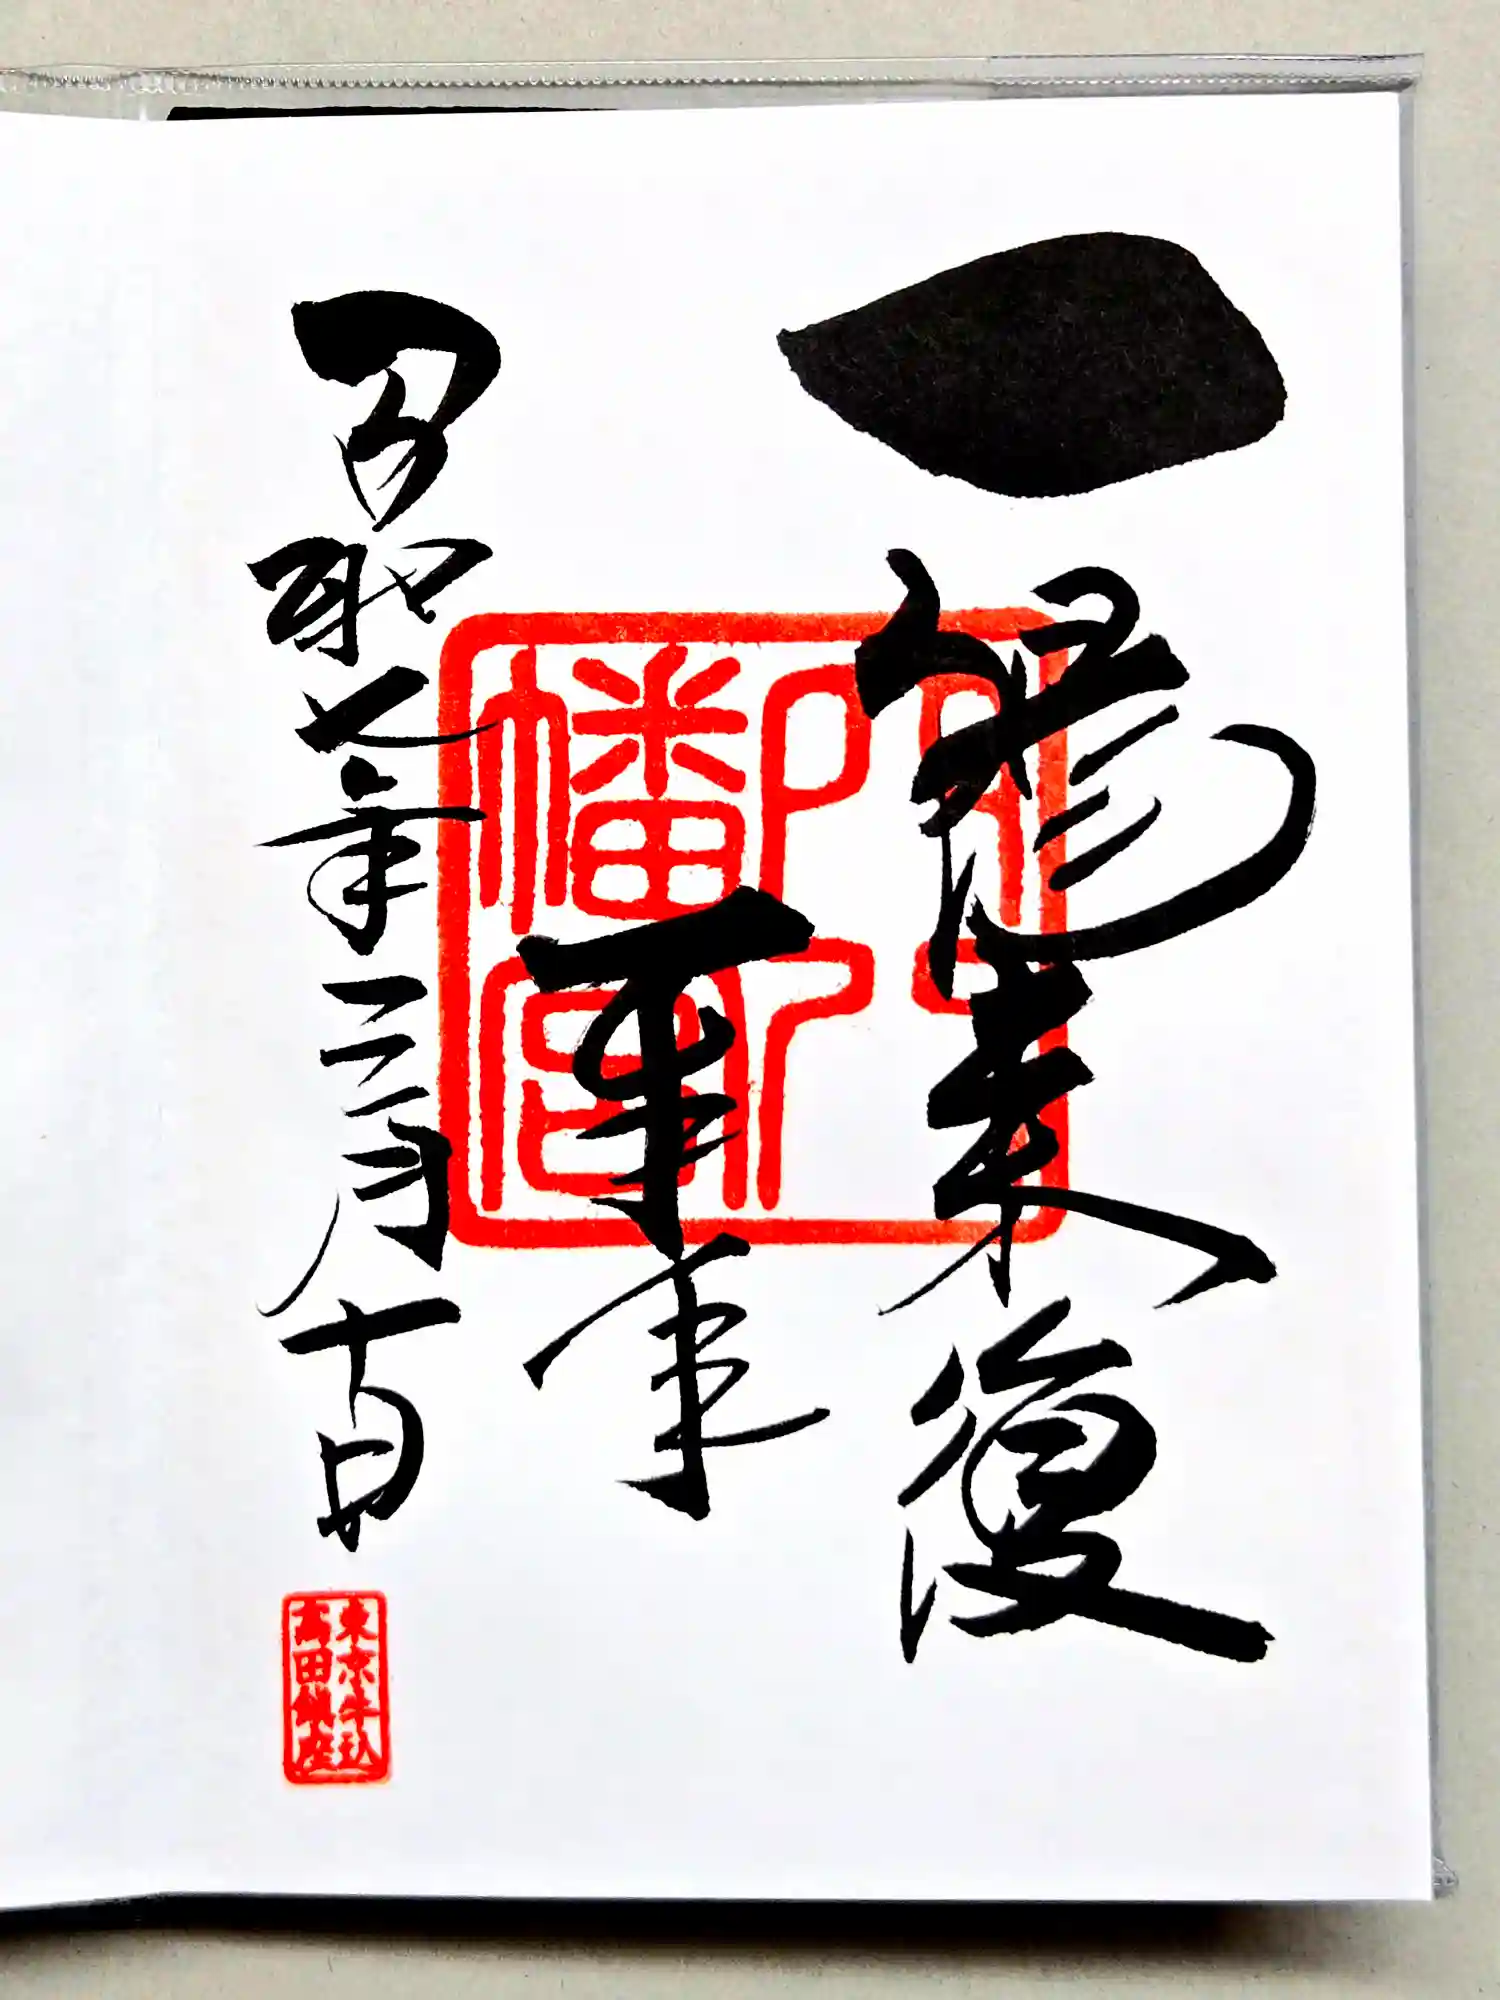 一陽来復
穴八幡宮
令和七年三月十日
東京牛込
高田鎮座